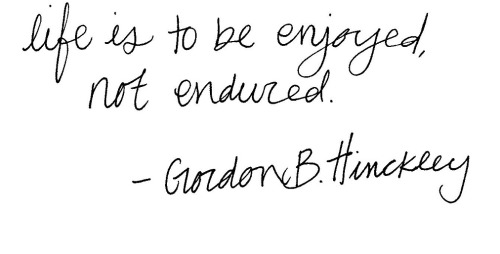 life is to be enjoyed,
not endured.
- Gordon B. Hinckley